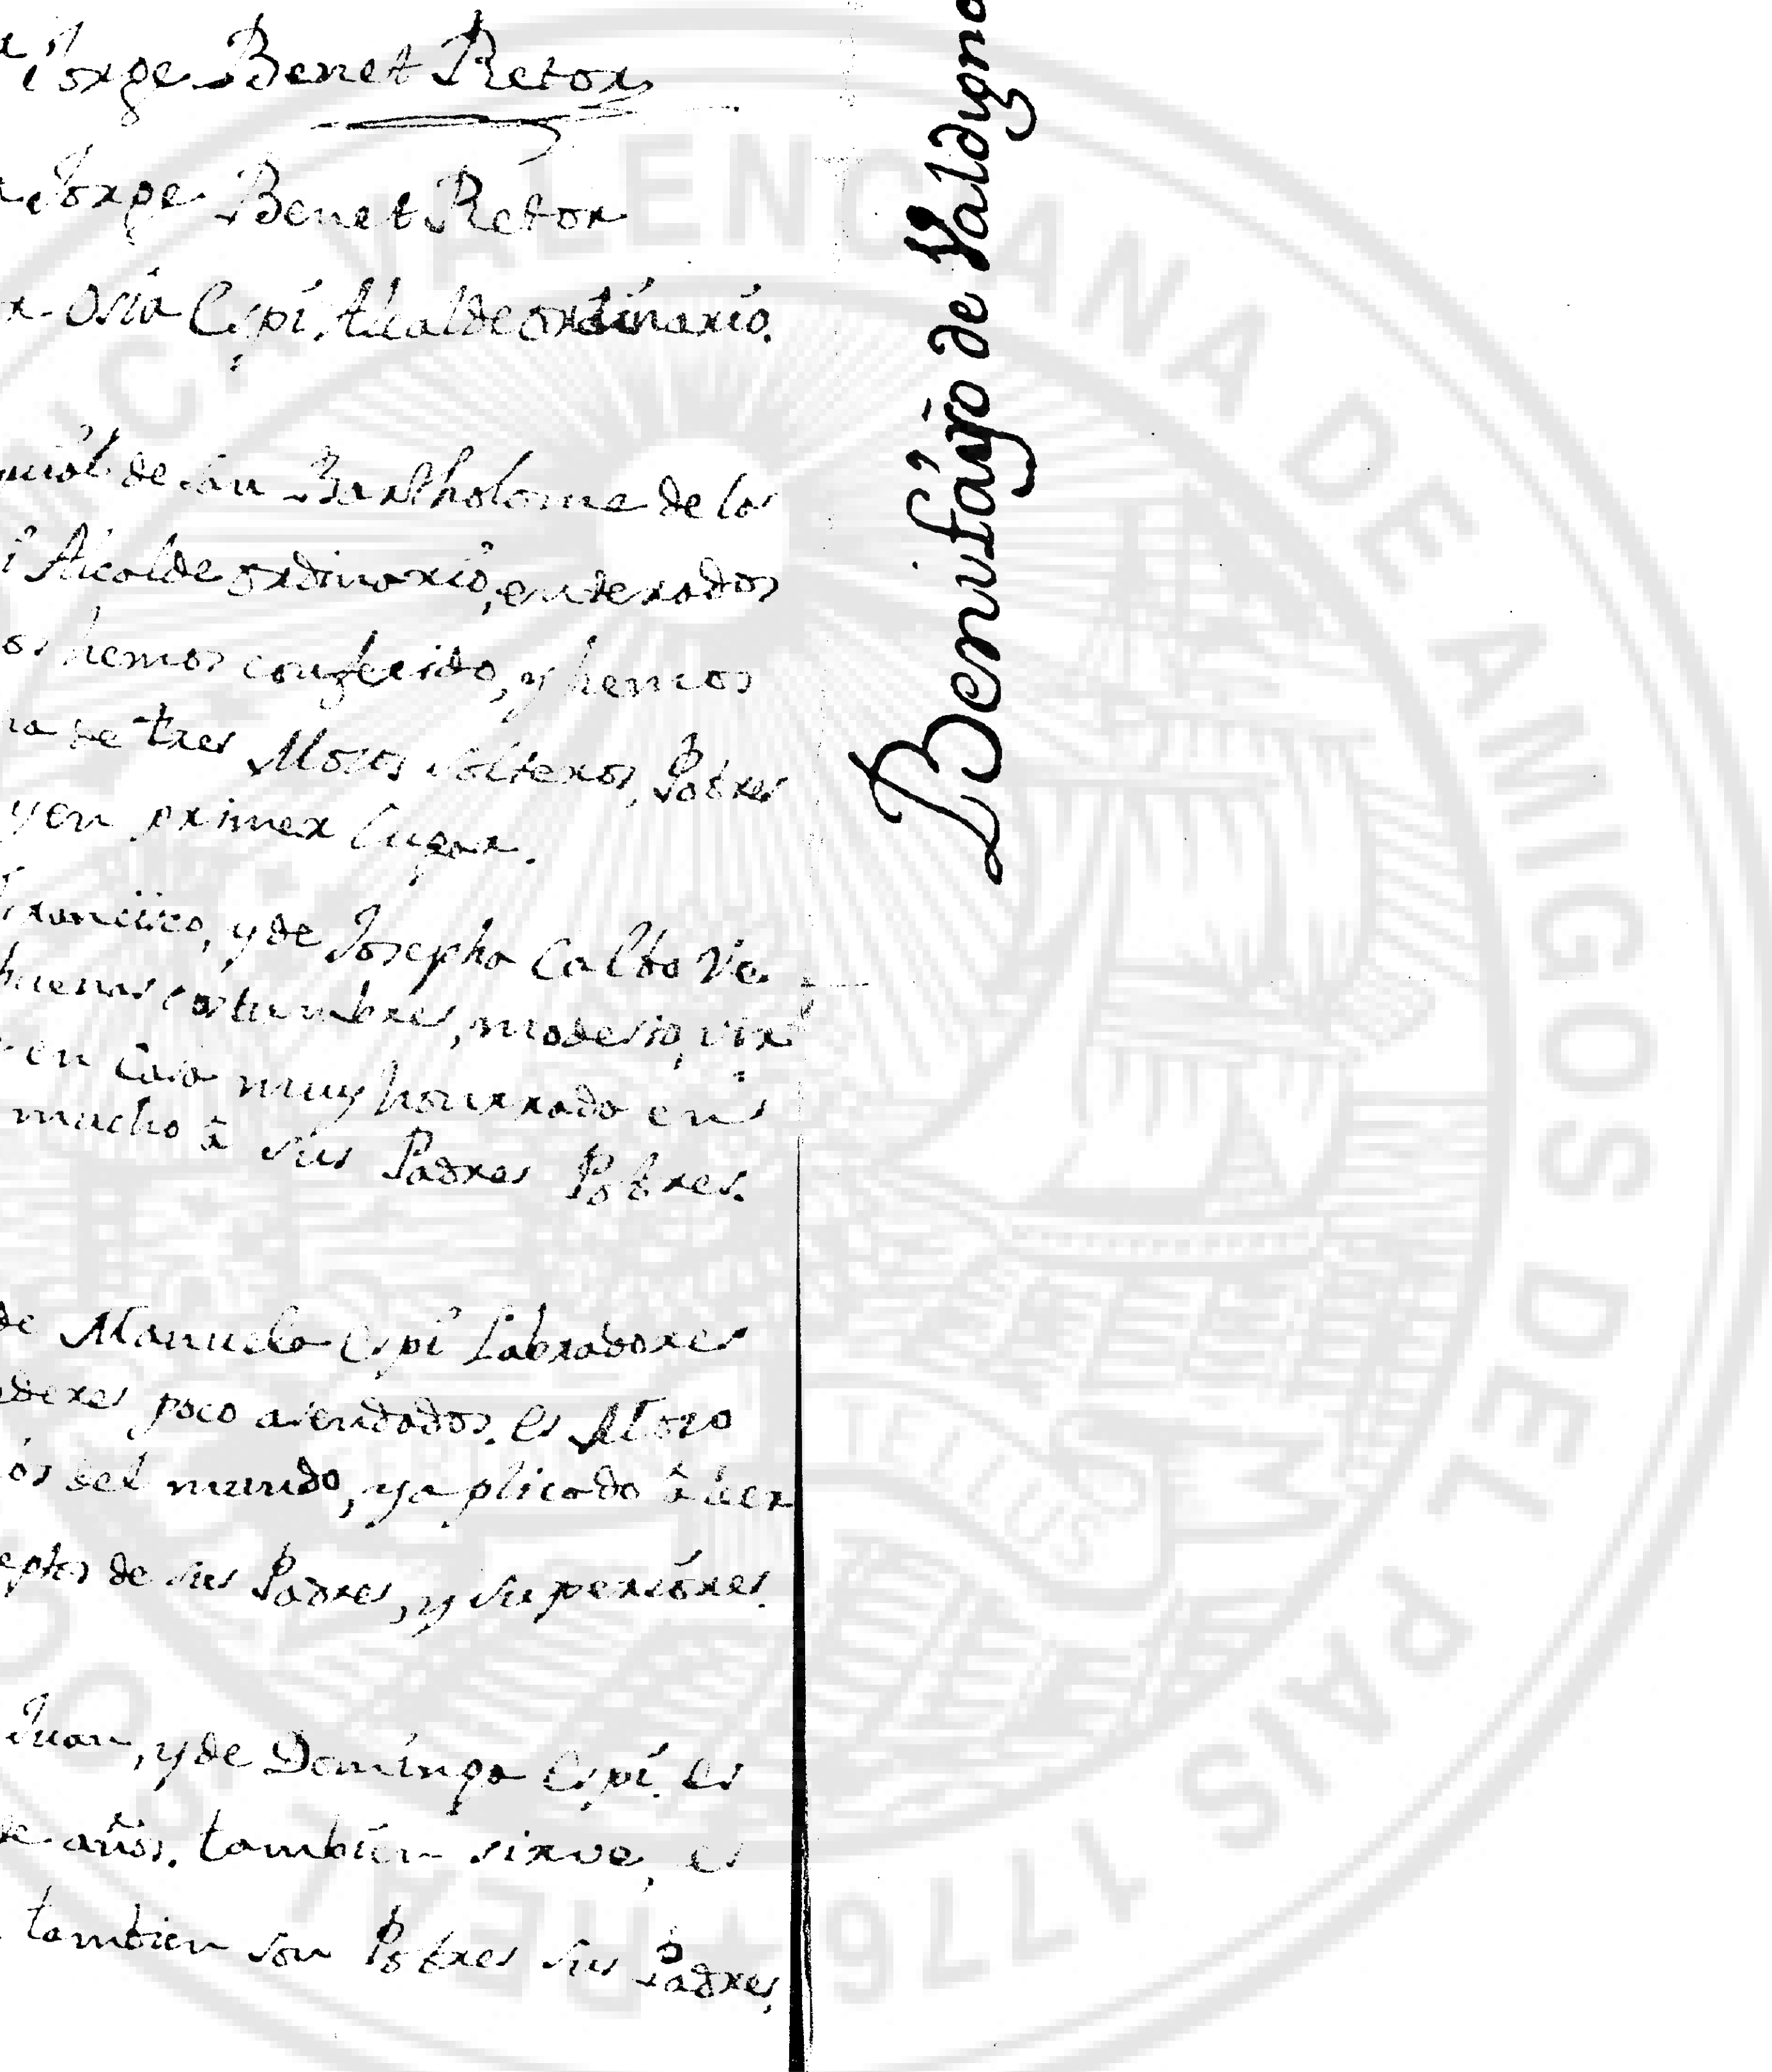 Jorge Benet Retor
Jorge Benet Retor
Osia Espí, Alcalde ordinario.
de San Bartholome de los
Alcalde ordinario, enterados
hemos conferido, y hemos
de tres Mosos solteros, Pobres
y en primer lugar.
Francisco, y de Josepha Calbo Ve
buenas costumbres, modesto, virt
en Casa muy honrrado en
mucho â sus Padres Pobres.
de Manuela Espi Labradores
poco asendados. es Moso
del mundo, y aplicado â
de sus Padres, y superióres.
Juan, y de Dominga Espí. es
de años. tambien sirve, es
tambien son Pobres sus Padres,
Benifáyró de Valdigna
VALENCIANA DE AMIGOS DEL PAIS 1776 REAL